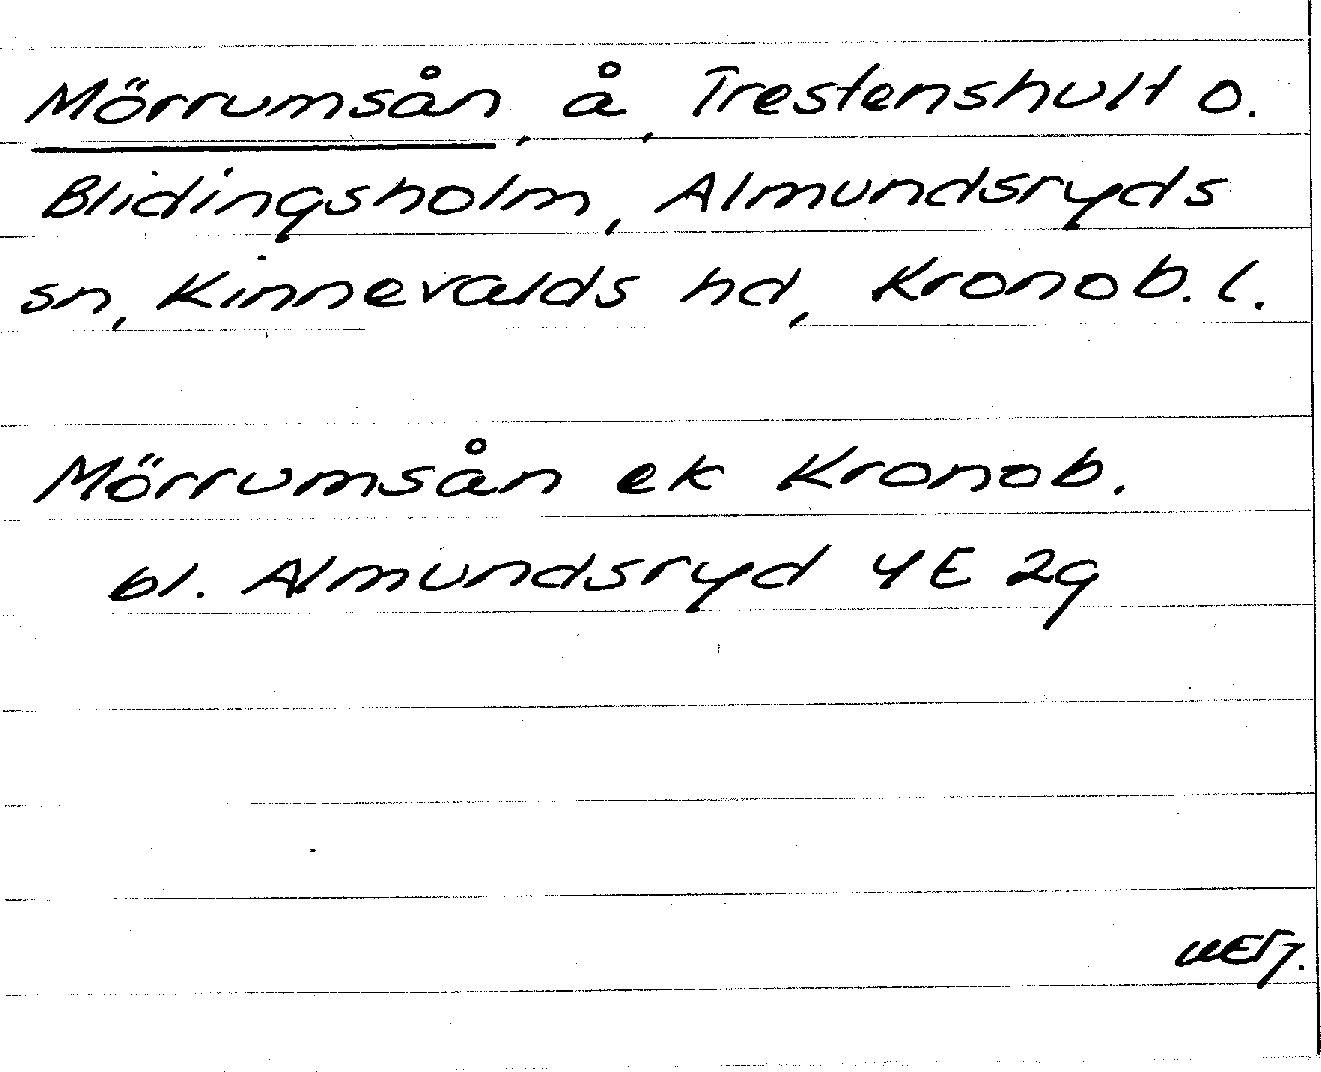 Mörrumsån, å, Trestenshult o.
Blidingsholm, Almundsryds
sn, Kinnevalds hd, Kronob. l.
Mörrumsån ek Kronob.
bl. Almundsryd 4E 2g